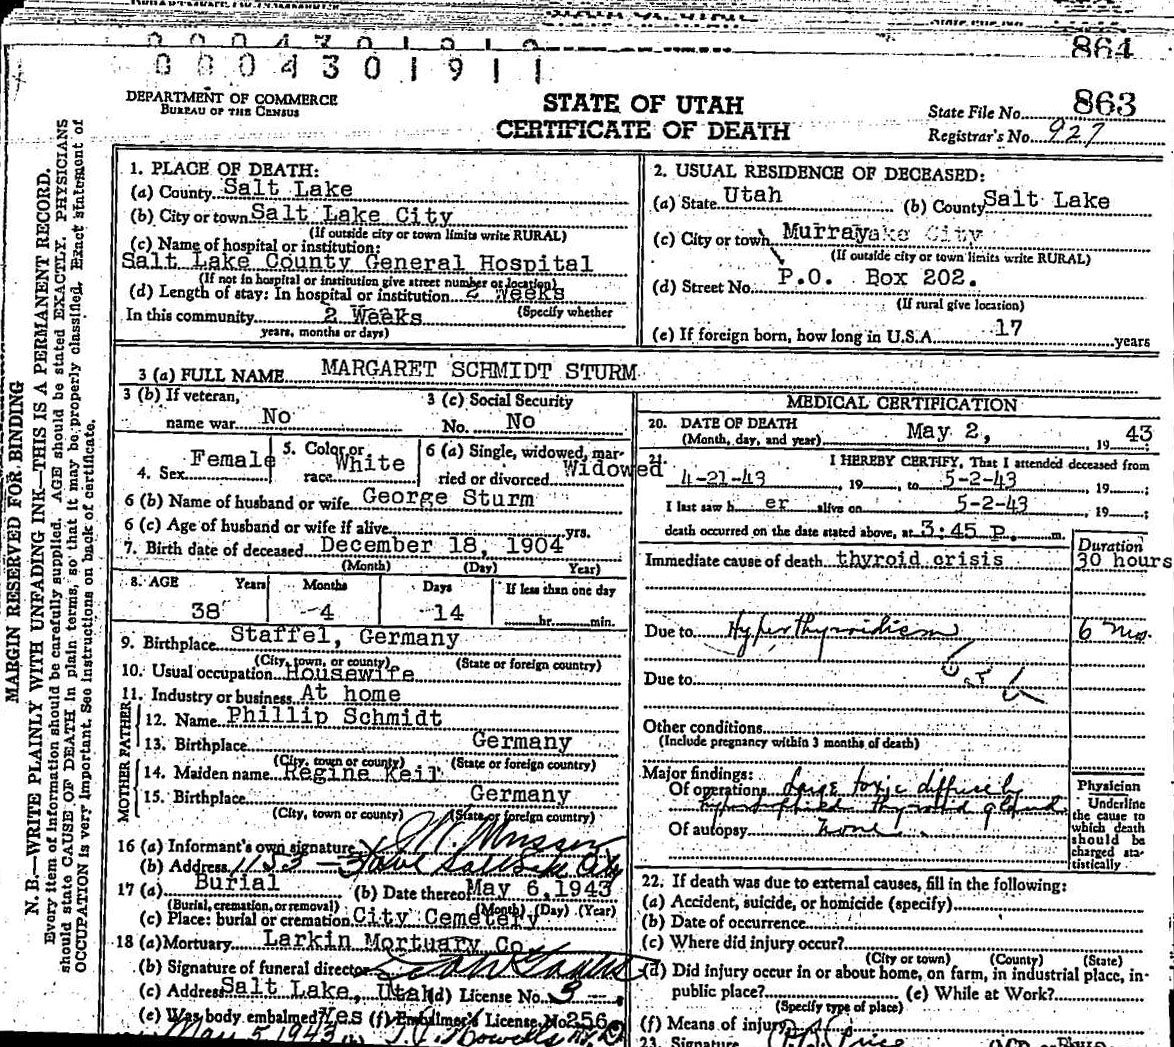 864
0 0 0 4 3 0 1 9 1 1
DEPARTMENT OF COMMERCE
BUREAU OF THE CENSUS
STATE OF UTAH
CERTIFICATE OF DEATH
State File No. 863
Registrar's No. 927
MARGIN RESERVED FOR BINDING
N. B.—WRITE PLAINLY WITH UNFADING INK—THIS IS A PERMANENT RECORD.
Every item of information should be carefully supplied. AGE should be stated EXACTLY. PHYSICIANS
should state CAUSE OF DEATH in plain terms, so that it may be properly classified. Exact statement of
OCCUPATION is very important. See instructions on back of certificate.
1. PLACE OF DEATH:
(a) County Salt Lake
(b) City or town Salt Lake City
(If outside city or town limits write RURAL)
(c) Name of hospital or institution:
Salt Lake County General Hospital
(If not in hospital or institution give street number or location)
(d) Length of stay: In hospital or institution 2 Weeks
(Specify whether
In this community 2 Weeks
years, months or days)
2. USUAL RESIDENCE OF DECEASED:
(a) State Utah (b) County Salt Lake
(c) City or town Murray
(If outside city or town limits write RURAL)
(d) Street No. P.O. Box 202.
(If rural give location)
(e) If foreign born, how long in U.S.A. 17 years
3 (a) FULL NAME MARGARET SCHMIDT STURM
3 (b) If veteran, name war No
3 (c) Social Security No. No
4. Sex Female 5. Color or race White 6 (a) Single, widowed, married or divorced Widowed
6 (b) Name of husband or wife George Sturm
6 (c) Age of husband or wife if alive yrs.
7. Birth date of deceased December 18, 1904
(Month) (Day) Year)
8. AGE Years Months Days If less than one day
38 4 14 hr. min.
9. Birthplace Staffel, Germany
(City, town, or county) (State or foreign country)
10. Usual occupation Housewife
11. Industry or business At home
FATHER
12. Name Phillip Schmidt
13. Birthplace Germany
(City, town or county) (State or foreign country)
MOTHER
14. Maiden name Regine Keil
15. Birthplace Germany
(City, town or county) (State or foreign country)
16 (a) Informant's own signature
(b) Address 1153
17 (a) Burial (b) Date thereof May 6, 1943
(Burial, cremation, or removal) (Month) (Day) (Year)
(c) Place: burial or cremation City Cemetery
18 (a) Mortuary Larkin Mortuary Co.
(b) Signature of funeral director
(c) Address Salt Lake, Utah (d) License No. 3
(e) Was body embalmed? Yes (f) Embalmer's License No. 256
May 5 1943
MEDICAL CERTIFICATION
20. DATE OF DEATH
(Month, day, and year) May 2, 19 43
21. I HEREBY CERTIFY, That I attended deceased from
4-21-43, 19 , to 5-2-43, 19 ;
I last saw h er alive on 5-2-43, 19 ;
death occurred on the date stated above, at 3:45 P. m.
Duration
Immediate cause of death thyroid crisis 30 hours
Due to Hyperthyroidism 6 mos.
Due to
Other conditions
(Include pregnancy within 3 months of death)
Major findings:
Of operations Large toxic diffusely
hypertrophied thyroid gland
Of autopsy none.
Physician
Underline
the cause to
which death
should be
charged sta-
tistically
22. If death was due to external causes, fill in the following:
(a) Accident, suicide, or homicide (specify)
(b) Date of occurrence
(c) Where did injury occur?
(City or town) (County) (State)
(d) Did injury occur in or about home, on farm, in industrial place, in-
public place? (e) While at Work?
(Specify type of place)
(f) Means of injury
23. Signature